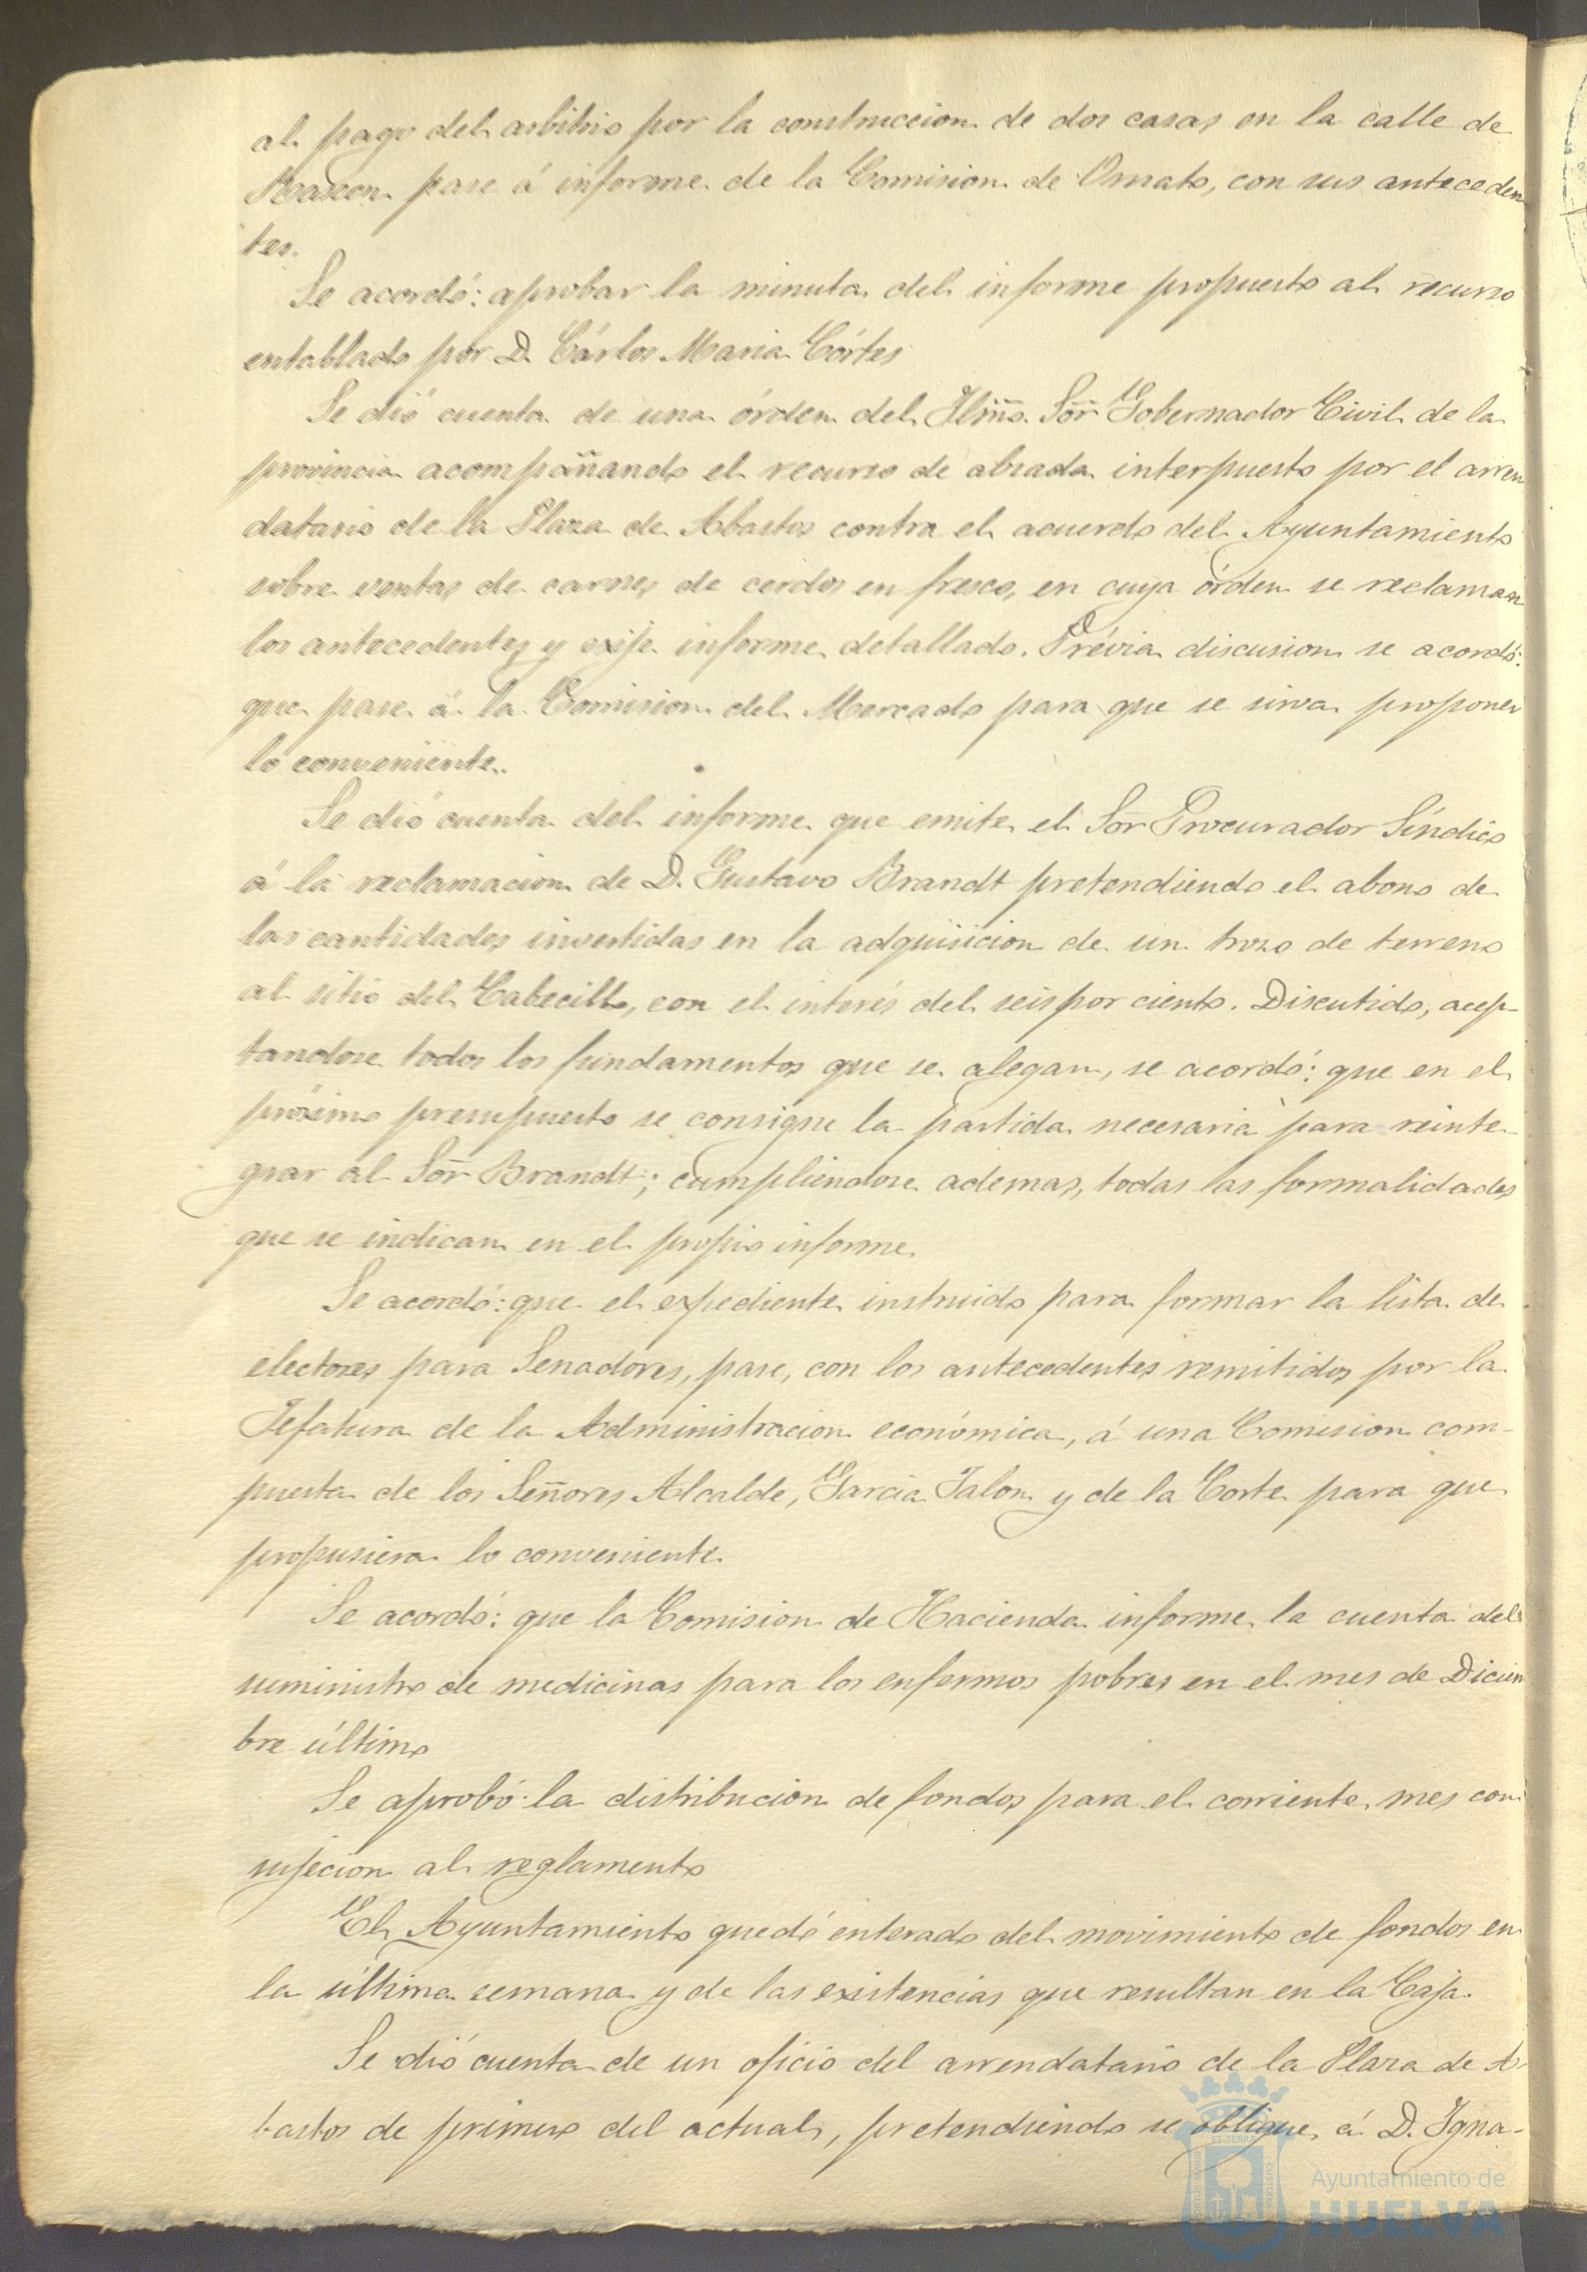 al pago del arbitrio por la construccion de dos casas en la calle de
Rascon pase á informe de la Comision de Ornato, con sus anteceden
tes.
Se acordó: aprobar la minuta del informe propuesto al recurso
entablado por D. Cárlos Maria Córtes
Se dió cuenta de una órden del Iltmo. Sor Gobernador Civil de la
provincia acompañando el recurso de alzada interpuesto por el arren
datario de la Plaza de Abastos contra el acuerdo del Ayuntamiento
sobre ventas de carnes de cerdos en fresco, en cuya órden se reclaman
los antecedentes y exije informe detallado. Prévia discusion se acordó:
que pase á la Comision del Mercado para que se sirva proponer
lo conveniente.
Se dió cuenta del informe que emite el Sor Procurador Síndico
á la reclamacion de D. Gustavo Brandt pretendiendo el abono de
las cantidades invertidas en la adquisicion de un trozo de terreno
al sitio del Cabecillo, con el interés del seis por ciento. Discutido, acep-
tandose todos los fundamentos que se alegan, se acordó: que en el
próximo presupuesto se consigne la partida necesaria para reinte-
grar al Sor Brandt; cumpliendose ademas, todas las formalidades
que se indican en el propio informe.
Se acordó: que el expediente instruido para formar la lista de
electores para Senadores, pase, con los antecedentes remitidos por la
Jefatura de la Administracion económica, á una Comision com-
puesta de los Señores Alcalde, Garcia Jalon y de la Corte para que
propusiera lo conveniente.
Se acordó: que la Comision de Hacienda informe la cuenta del
suministro de medicinas para los enfermos pobres en el mes de Diciem
bre último
Se aprobó la distribucion de fondos para el corriente mes con
sujecion al reglamento
El Ayuntamiento quedó enterado del movimiento de fondos en
la última semana y de las existencias que resultan en la Caja.
Se dió cuenta de un oficio del arrendatario de la Plaza de A-
bastos de primero del actual, pretendiendo se obligue á D. Igna-
Ayuntamiento de
HUELVA